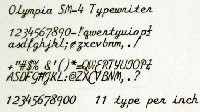 Olympia SM-4 Typewriter
1234567890-!qwertyuiop½
asdfghjkl;¢zxcvbnm,.?
+"#$% &'()*=QWERTYUIOP¼
ASDFGHJKL:@ZXCVBNM,.?
1234567890 11 type per inch